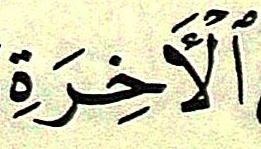 ٱلْأَخِرَةِ